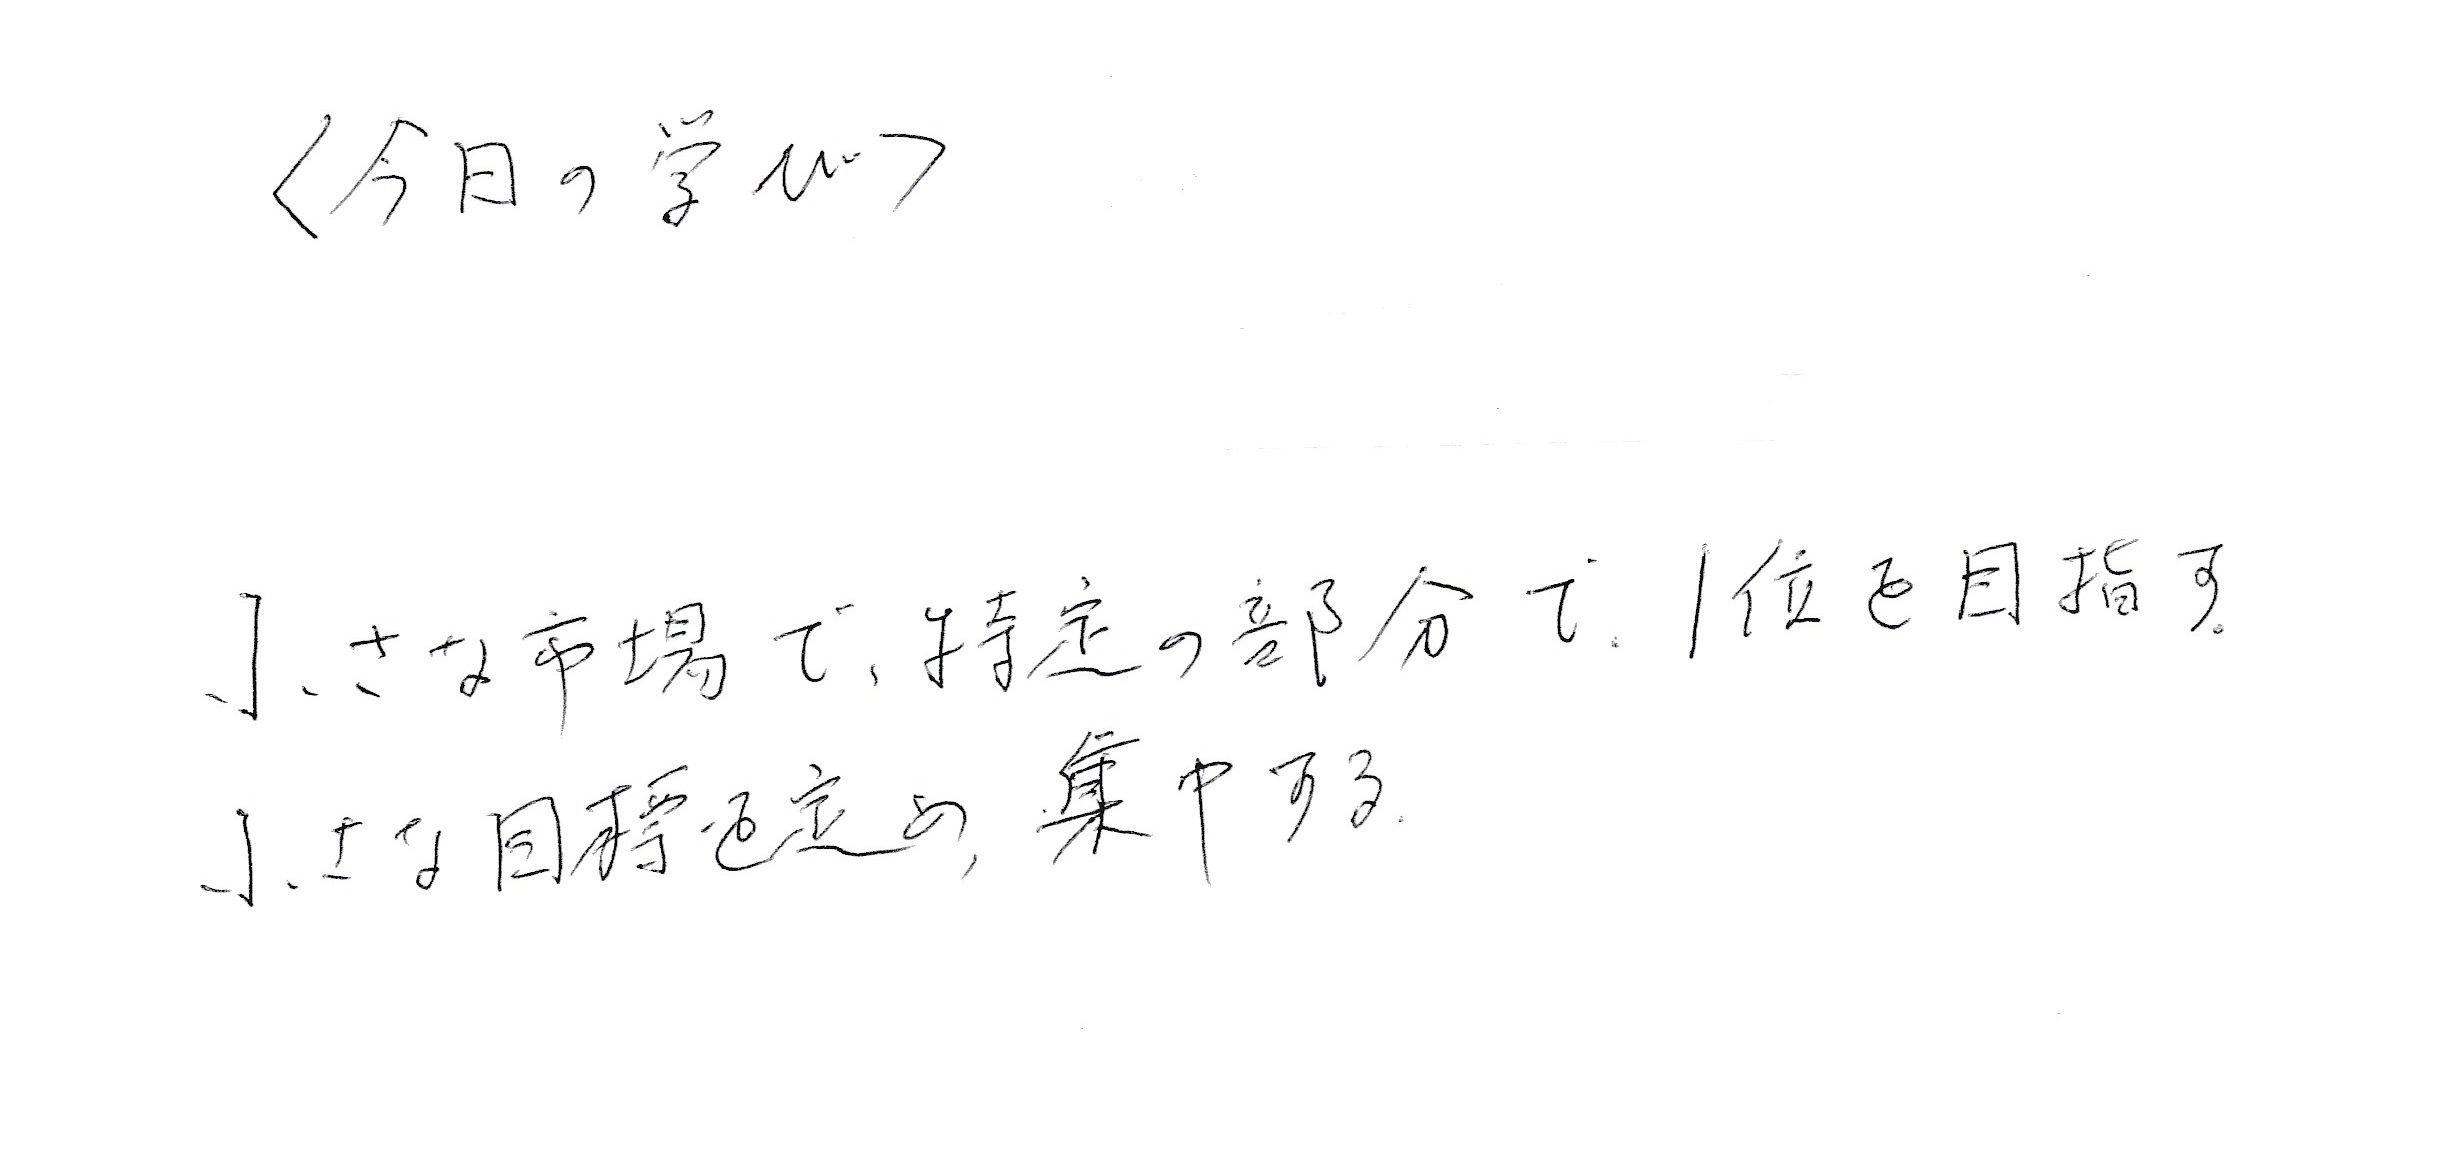 〈今日の学び〉
小さな市場で、特定の部分で、1位を目指す。
小さな目標を定め、集中する。